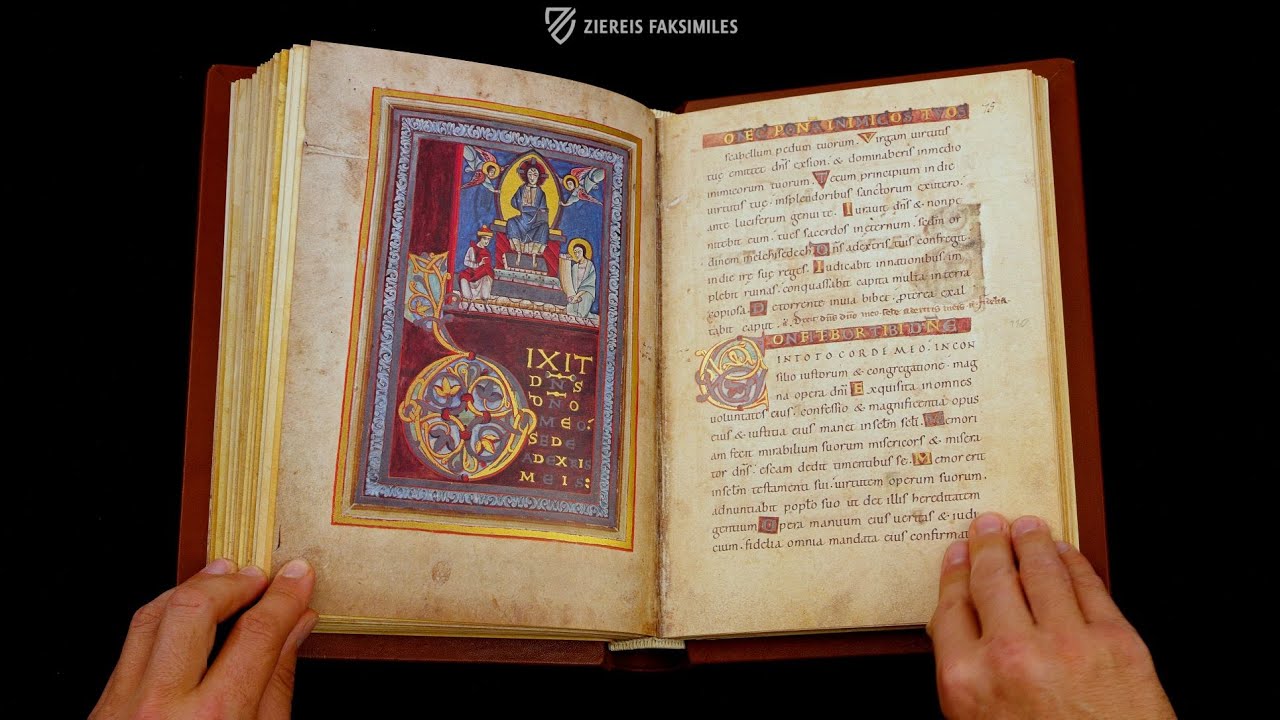 ZIEREIS FAKSIMILES
DIXIT
DNS
DNO
MEO:
SEDE
ADEXTRIS
MEIS:
ONEC PONAM INIMICOS TUO
scabellum pedum tuorum. Virgam uirtutis
tuę emittet dns exsion. & dominaberis inmedio
inimicorum tuorum. Tecum principium in die
uirtutis tuę. insplendoribus sanctorum exutero.
ante luciferum genui te. Iurauit dns & nonpę
nitebit eum. tu es sacerdos in eternum. sedm or
dinem melchisedech. Dns adextris tuis confregit
in die irę suę reges. Iudicabit innationibus im
plebit ruinas. conquassabit capita multa in terra
copiosa. De torrente inuia bibet. pterea exal
tabit caput. Dixit dns dno meo sede a dextris meis
110
CONFITEBOR TIBI DNE
INTOTO CORDE MEO. INCON
silio iustorum & congregatione. mag
na opera dni Exquisita in omnes
uoluntates eius. Confessio & magnificentia opus
eius & iustitia eius manet inselm seli. Memori
am fecit mirabilium suorum misericors & misera
tor dns. escam dedit timentibus se. Memor erit
inselm testamenti sui. uirtutem operum suorum.
adnuntiabit poplo suo ut det illis hereditatem
gentium Opera manuum eius ueritas & iudi
cium. fidelia omnia mandata eius confirmata